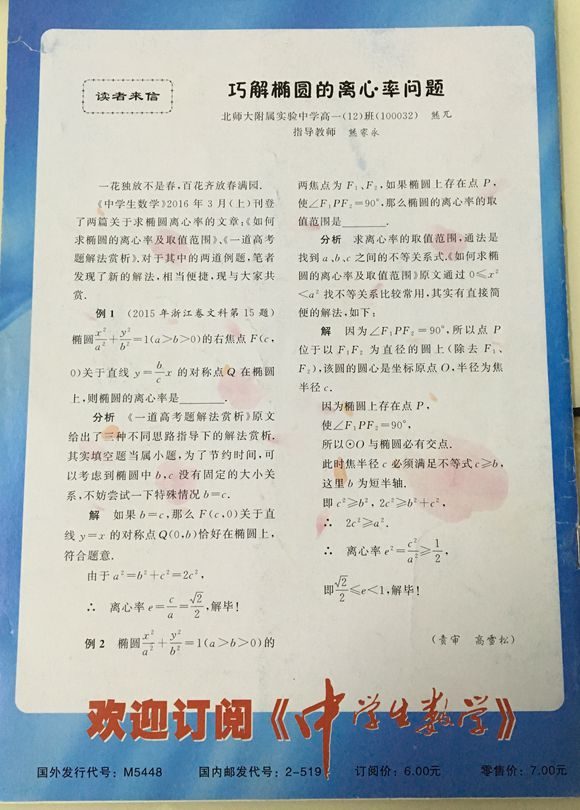 读者来信
巧解椭圆的离心率问题
北师大附属实验中学高一(12)班(100032) 熊 兀
指导教师 熊家永
一花独放不是春,百花齐放春满园.
《中学生数学》2016 年 3 月(上)刊登
了两篇关于求椭圆离心率的文章:《如何
求椭圆的离心率及取值范围》、《一道高考
题解法赏析》.对于其中的两道例题,笔者
发现了新的解法,相当便捷,现与大家共
赏.
例 1 (2015 年浙江卷文科第 15 题)
椭圆x²/a²+y²/b²=1(a>b>0)的右焦点 F(c,
0)关于直线 y=b/c x 的对称点 Q 在椭圆
上,则椭圆的离心率是________.
分析 《一道高考题解法赏析》原文
给出了三种不同思路指导下的解法赏析.
其实填空题当属小题,为了节约时间,可
以考虑到椭圆中 b,c 没有固定的大小关
系,不妨尝试一下特殊情况 b=c.
解 如果 b=c,那么 F(c,0)关于直
线 y=x 的对称点Q(0,b)恰好在椭圆上,
符合题意.
由于 a²=b²+c²=2c²,
∴ 离心率 e=c/a=√2/2,解毕!
例 2 椭圆x²/a²+y²/b²=1(a>b>0)的
两焦点为 F₁、F₂,如果椭圆上存在点 P,
使∠F₁PF₂=90°,那么椭圆的离心率的取
值范围是________.
分析 求离心率的取值范围,通法是
找到 a、b、c 之间的不等关系式.《如何求椭
圆的离心率及取值范围》原文通过 0≤x²
<a² 找不等关系比较常用,其实有直接简
便的解法,如下:
解 因为∠F₁PF₂=90°,所以点 P
位于以 F₁F₂ 为直径的圆上(除去 F₁、
F₂),该圆的圆心是坐标原点 O,半径为焦
半径 c.
因为椭圆上存在点 P,
使∠F₁PF₂=90°,
所以⊙O 与椭圆必有交点.
此时焦半径 c 必须满足不等式 c≥b,
这里 b 为短半轴.
即 c²≥b², 2c²≥b²+c²,
∴ 2c²≥a².
∴ 离心率 e²=c²/a²≥1/2,
即√2/2≤e<1,解毕!
(责审 高雪松)
欢迎订阅《中学生数学》
国外发行代号:M5448 国内邮发代号:2-519 订阅价:6.00元 零售价:7.00元